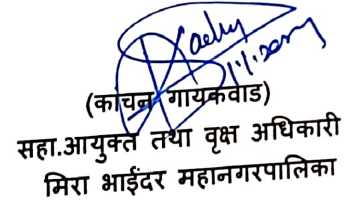 (कांचन गायकवाड)
सहा.आयुक्त तथा वृक्ष अधिकारी
मिरा भाईंदर महानगरपालिका